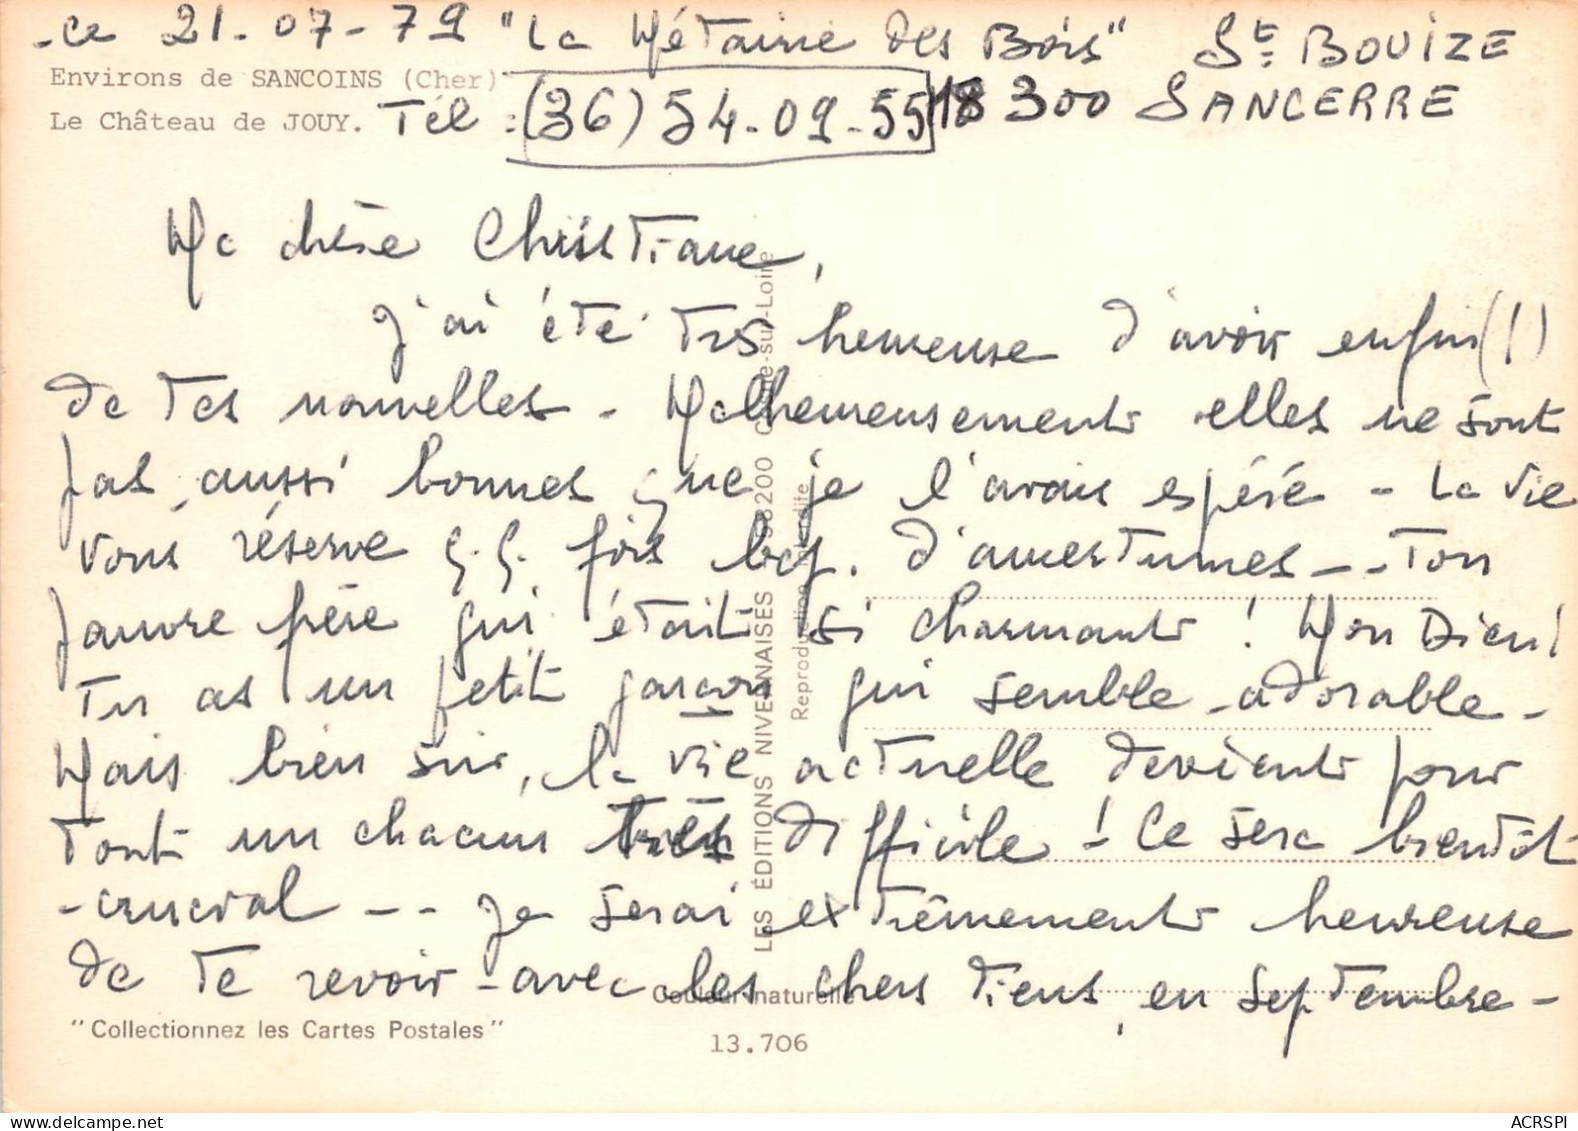 -ce 21-07-79 "La Métairie des Bois" St: BOUIZE
Environs de SANCOINS (Cher)
Le Château de JOUY. Tél : (36) 54-09-55 18 300 SANCERRE
Ma chère Christiane,
j'ai été très heureuse d'avoir enfin (!)
de tes nouvelles - Malheureusement elles ne sont
pas aussi bonnes que je l'avais espéré - La vie
vous réserve q.q. fois bcp. d'amertumes -- Ton
pauvre père qui était si charmant ! Mon Dieu !
Tu as un petit garçon qui semble adorable -
Mais bien sûr, la vie actuelle devient pour
tout un chacun très difficile ! Ce sera bientôt
crucial -- Je serai extrêmement heureuse
de te revoir avec les chers tiens, en septembre -
Couleur naturelle
"Collectionnez les Cartes Postales"
13.706
LES ÉDITIONS NIVERNAISES 58200 Cosne-sur-Loire
Reproduction interdite
ACRSPI